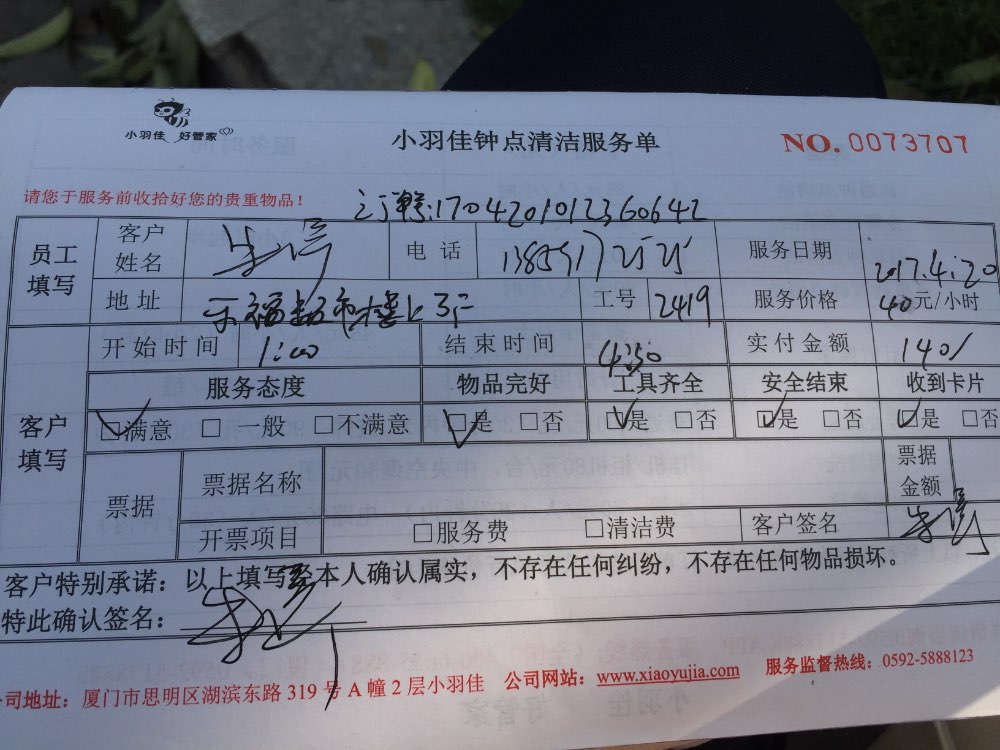 小羽佳 好管家
小羽佳钟点清洁服务单
NO. 0073707
请您于服务前收拾好您的贵重物品！
1704201012360642
员工填写 客户姓名 电话 服务日期 2017.4.20
地址 工号 2419 服务价格 40元/小时
开始时间 1:00 结束时间 4:30 实付金额 140/
客户填写 服务态度 物品完好 工具齐全 安全结束 收到卡片
☑满意 □一般 □不满意 ☑是 □否 ☑是 □否 ☑是 □否 ☑是 □否
票据 票据名称 票据金额
开票项目 □服务费 □清洁费 客户签名
客户特别承诺：以上填写经本人确认属实，不存在任何纠纷，不存在任何物品损坏。
特此确认签名：
公司地址：厦门市思明区湖滨东路 319 号 A 幢 2 层小羽佳 公司网站：www.xiaoyujia.com 服务监督热线：0592-5888123